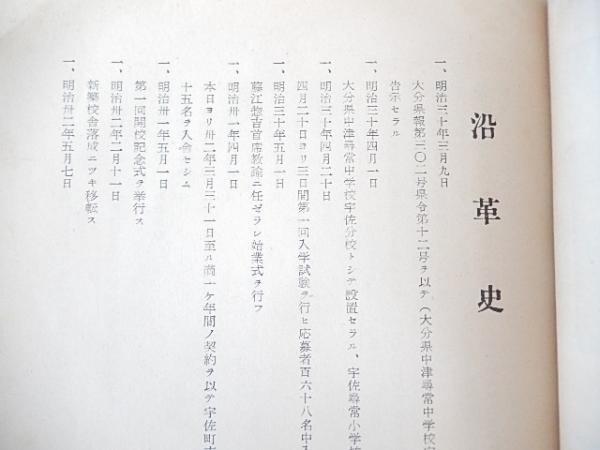 沿革史
一、明治三十年三月九日
大分県報第三〇二号県令第十二号ヲ以テ（大分県中津尋常中学校
告示セラル
一、明治三十年四月一日
大分県中津尋常中学校宇佐分校トシテ設置セラル、宇佐尋常小学校
一、明治三十年四月二十日
四月二十日ヨリ三日間第一回入学試験ヲ行ヒ応募者百六十八名中入
一、明治三十年五月一日
藤江惣吉首席教諭ニ任ゼラレ始業式ヲ行フ
一、明治卅一年四月一日
本日ヨリ卅二年三月三十一日至ル満一ケ年間ノ契約ヲ以テ宇佐町
十五名ヲ入舎セシム
一、明治卅一年五月一日
第一回開校記念式ヲ挙行ス
一、明治卅二年二月十一日
新築校舎落成ニツキ移転ス
一、明治卅二年五月七日